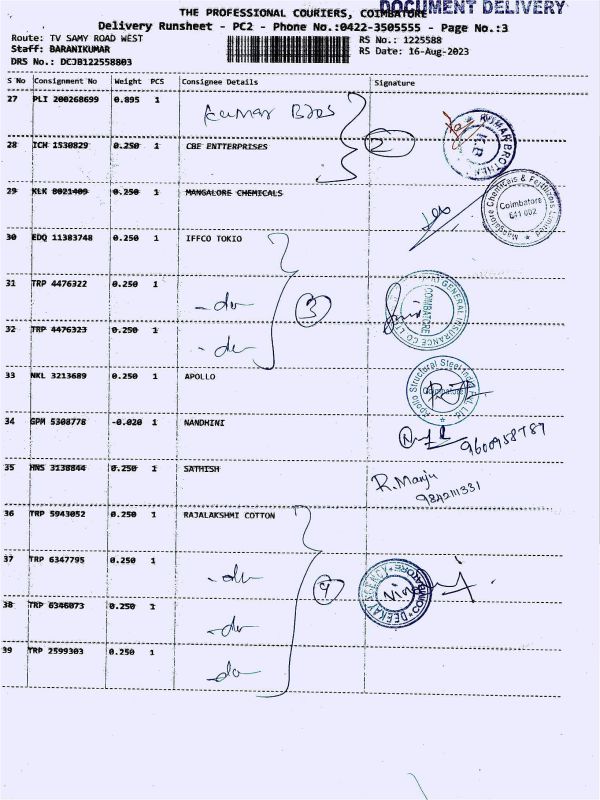 DOCUMENT DELIVERY
THE PROFESSIONAL COURIERS, COIMBATORE
Delivery Runsheet - PC2 - Phone No.:0422-3505555 - Page No.:3
Route: TV SAMY ROAD WEST RS No.: 1225588
Staff: BARANIKUMAR RS Date: 16-Aug-2023
DRS No.: DCJB122558803
S No Consignment No Weight PCS Consignee Details Signature
27 PLI 200268699 0.895 1 Kumar Bros
KUMAR BROTHER
28 ICH 1530829 0.250 1 CBE ENTTERPRISES 2
29 KLK 0021409 0.250 1 MANGALORE CHEMICALS
Mangalore Chemicals & Fertilizers Limited
Coimbatore
641 002
30 EDQ 11383748 0.250 1 IFFCO TOKIO
31 TRP 4476322 0.250 1 -do- 3
GENERAL INSURANCE CO LTD
COIMBATORE
32 TRP 4476323 0.250 1 -do-
33 NKL 3213689 0.250 1 APOLLO
Apollo Structural Steel India Pvt. Ltd.
Coimbatore
34 GPM 5308778 -0.020 1 NANDHINI 9600958787
35 HNS 3138844 0.250 1 SATHISH R. Manju
9842111331
36 TRP 5943052 0.250 1 RAJALAKSHMI COTTON
37 TRP 6347795 0.250 1 -do-
DEEKAY AGENCY
38 TRP 6346073 0.250 1 -do-
39 TRP 2599303 0.250 1 -do-